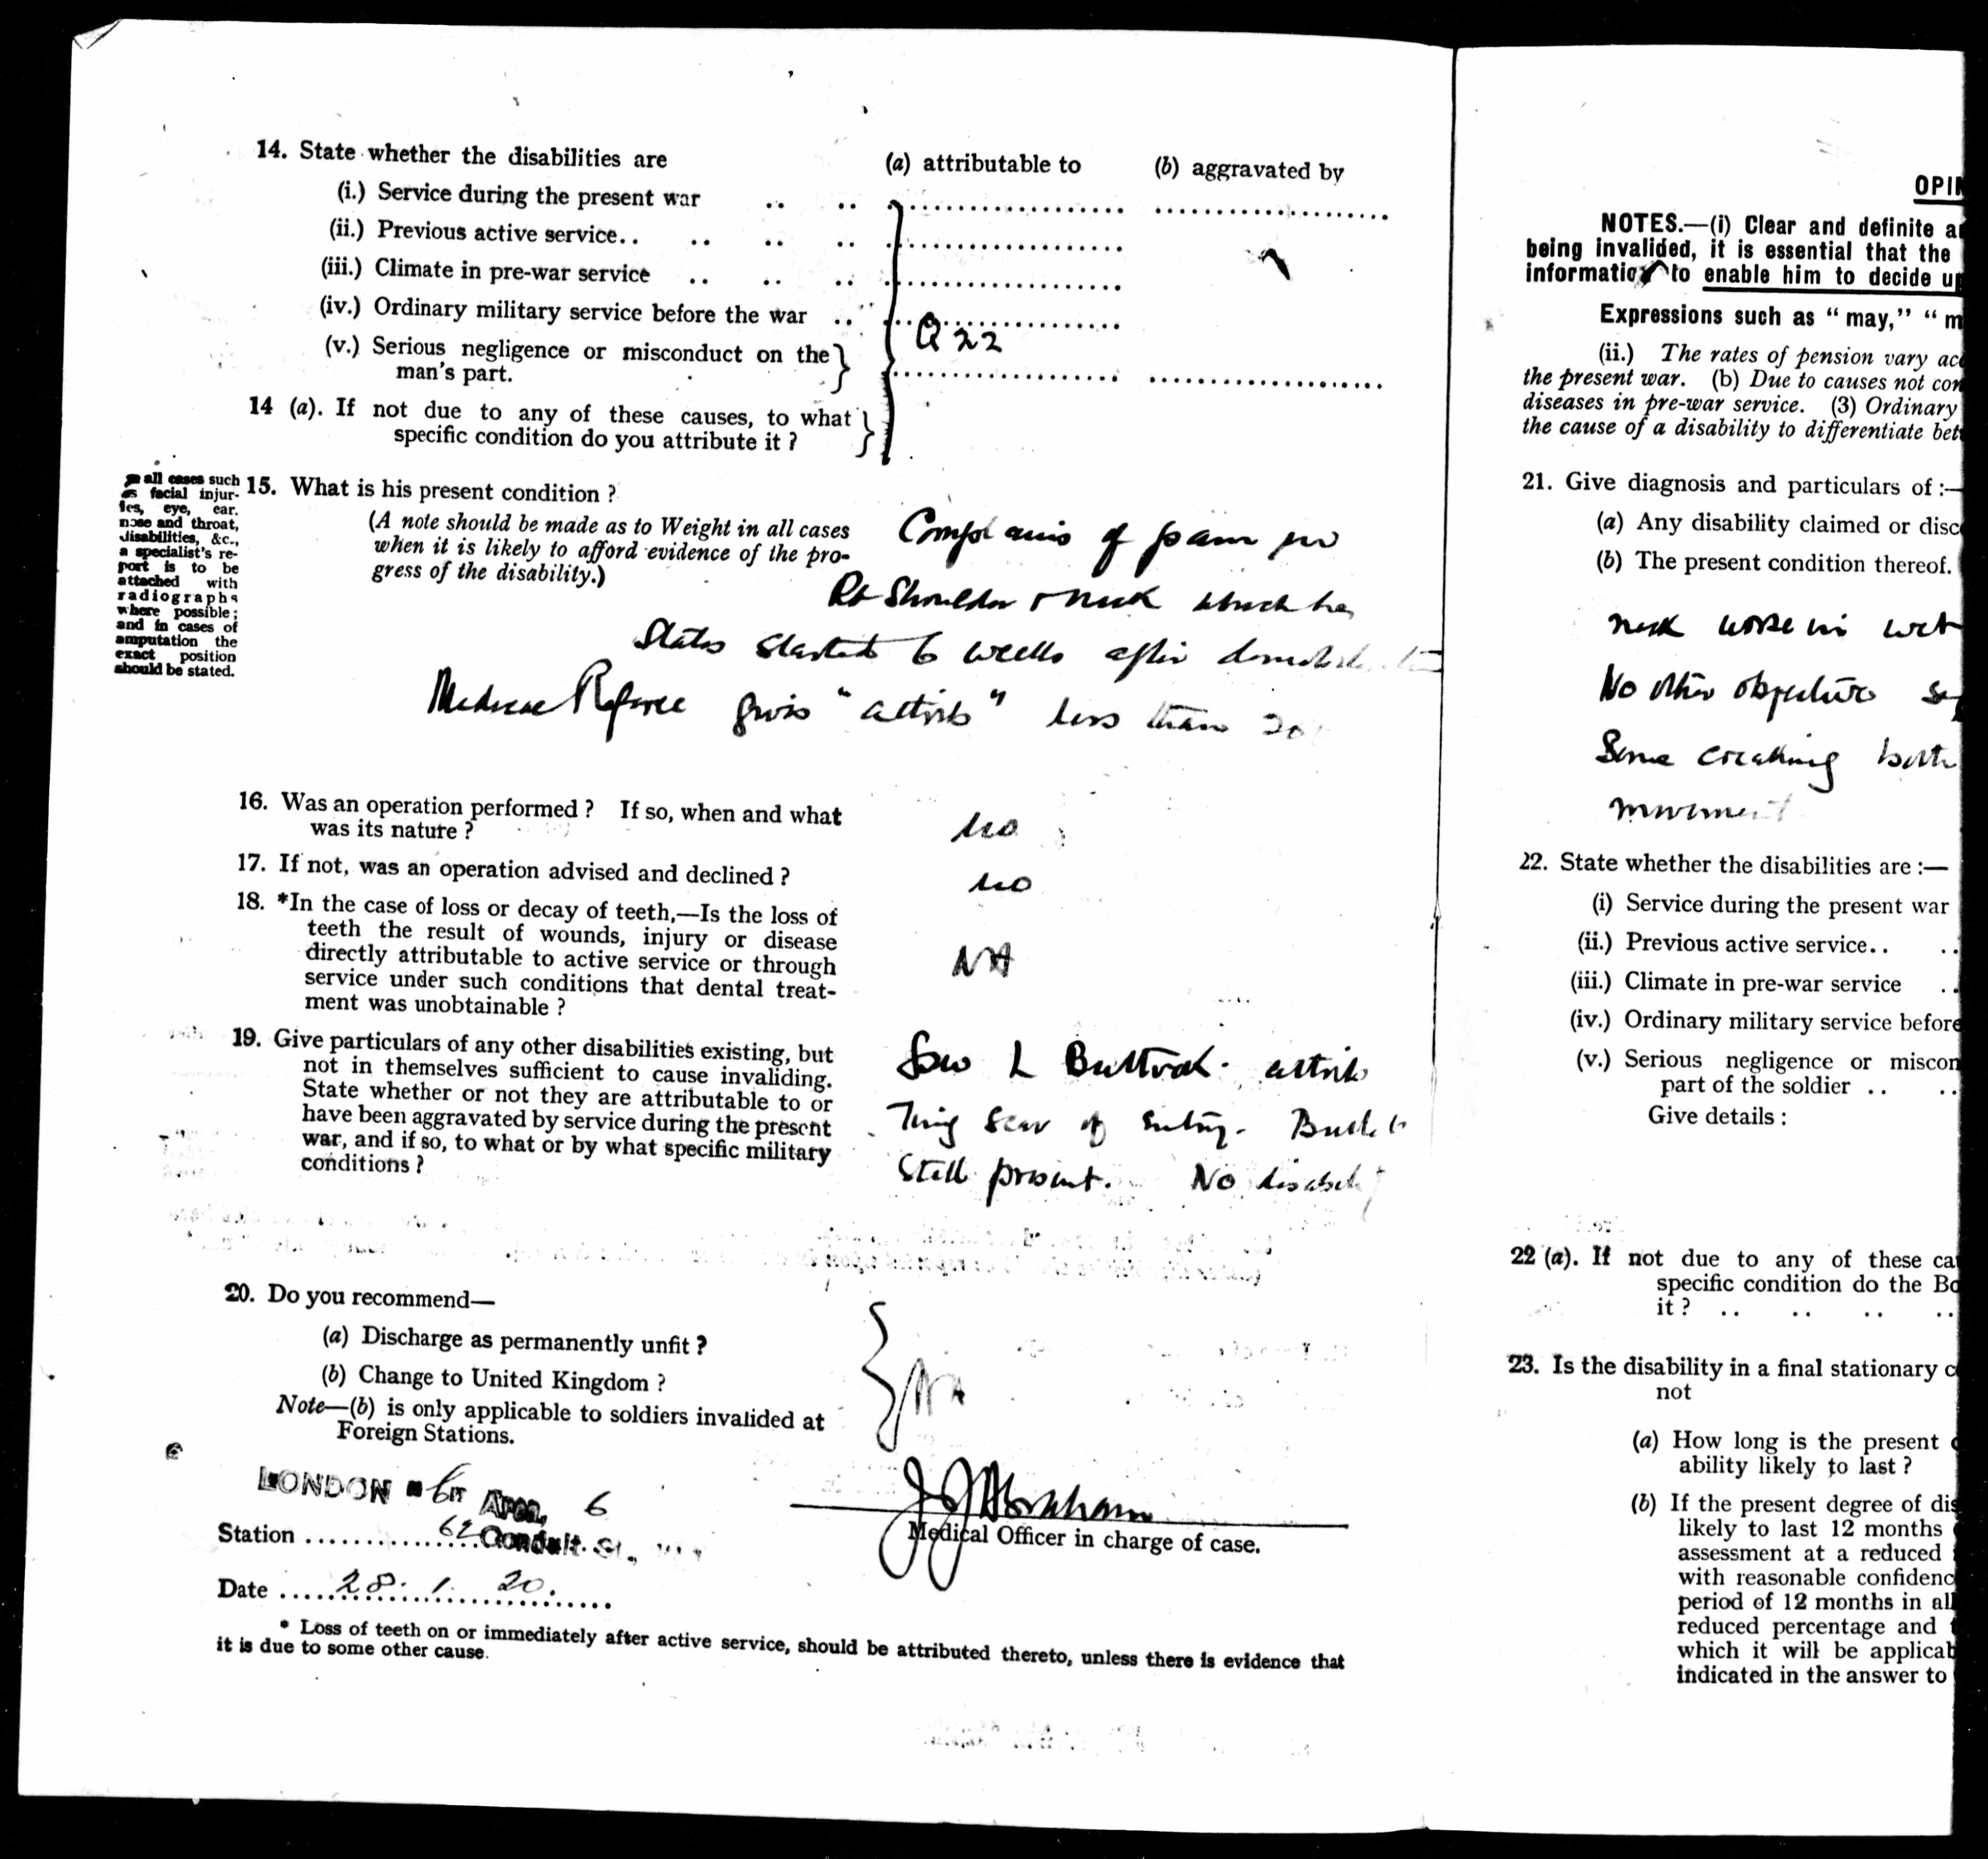 14. State whether the disabilities are (a) attributable to (b) aggravated by
(i.) Service during the present war
(ii.) Previous active service..
(iii.) Climate in pre-war service
(iv.) Ordinary military service before the war
Q 22
(v.) Serious negligence or misconduct on the
man's part.
14 (a). If not due to any of these causes, to what
specific condition do you attribute it ?
all cases such
as facial injur-
ies, eye, ear.
nose and throat,
disabilities, &c.,
a specialist's re-
port is to be
attached with
radiographs
where possible;
and in cases of
amputation the
exact position
should be stated.
15. What is his present condition ?
(A note should be made as to Weight in all cases
when it is likely to afford evidence of the pro-
gress of the disability.)
Complains of pain in
Rt Shoulder & neck which he
states started 6 weeks after
Medical Referee gives "attrib" less than 20
16. Was an operation performed ? If so, when and what
was its nature ?
no
17. If not, was an operation advised and declined ?
no
18. *In the case of loss or decay of teeth,—Is the loss of
teeth the result of wounds, injury or disease
directly attributable to active service or through
service under such conditions that dental treat-
ment was unobtainable ?
NA
19. Give particulars of any other disabilities existing, but
not in themselves sufficient to cause invaliding.
State whether or not they are attributable to or
have been aggravated by service during the present
war, and if so, to what or by what specific military
conditions ?
GSW L Buttock. attrib
Tiny scar of entry. Bullet
Still present. No
20. Do you recommend—
(a) Discharge as permanently unfit ?
(b) Change to United Kingdom ?
Note—(b) is only applicable to soldiers invalided at
Foreign Stations.
NA
LONDON Area, 6
Station 62 Conduit. St.
J J Abraham
Medical Officer in charge of case.
Date 28. 1. 20.
* Loss of teeth on or immediately after active service, should be attributed thereto, unless there is evidence that
it is due to some other cause.
OPIN
NOTES.—(i) Clear and definite a
being invalided, it is essential that the
information to enable him to decide up
Expressions such as "may," "m
(ii.) The rates of pension vary acc
the present war. (b) Due to causes not con
diseases in pre-war service. (3) Ordinary
the cause of a disability to differentiate bet
21. Give diagnosis and particulars of :—
(a) Any disability claimed or disc
(b) The present condition thereof.
neck worse in wet
No other objective
Some creaking both
movement
22. State whether the disabilities are :—
(i) Service during the present war
(ii.) Previous active service..
(iii.) Climate in pre-war service
(iv.) Ordinary military service before
(v.) Serious negligence or miscon
part of the soldier ..
Give details :
22 (a). If not due to any of these ca
specific condition do the Bo
it ?
23. Is the disability in a final stationary c
not
(a) How long is the present
ability likely to last ?
(b) If the present degree of dis
likely to last 12 months
assessment at a reduced
with reasonable confidenc
period of 12 months in all
reduced percentage and
which it will be applicab
indicated in the answer to